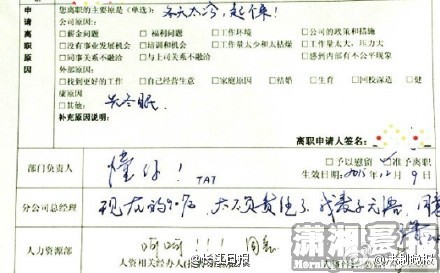 您离职的主要原是(单选): 冬天太冷,起不来!
申请离职原因
公司原因:
□薪金问题 □福利问题 □工作环境 □公司的政策和措施
□没有事业发展机会 □培训和机会 □工作量太少和枯燥 □工作量太大,压力大
□同事关系不融洽 □与上司关系不融洽 □感到内部有不公平现象
外部原因:
□找到更好的工作 □自己经营生意 □家庭原因 □结婚 □生育 □回校深造 □健
康原因
□其他: 去冬眠
补充原因说明:
离职申请人签名:
部门负责人 懂你! TAT □予以慰留 准予离职
生效日期: 2015 12月9日
分公司总经理 现在的90后,太不负责任了
人力资源部 呵呵!!! 同意
人资相关经办人
潇湘晨报
@长江日报 @法制晚报